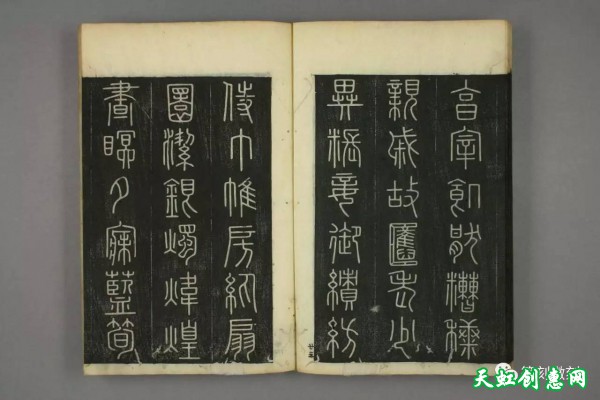 亨宰飢厭糟糠
親戚故舊老少
異粻妾御績紡
侍巾帷房紈扇
圓潔銀燭煒煌
晝眠夕寐藍筍
篆刻教
天虹创惠网